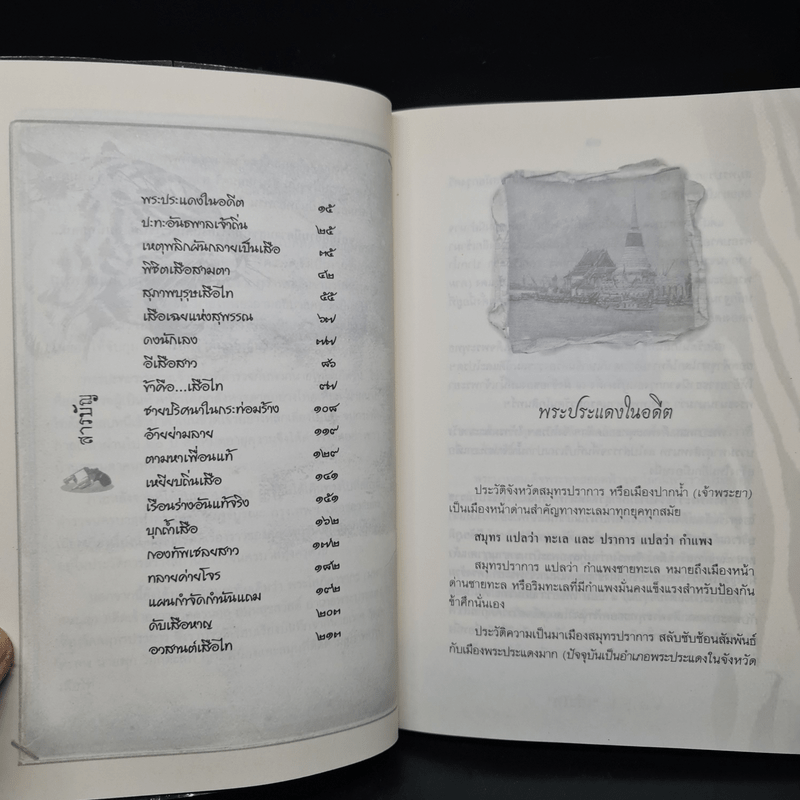 สารบัญ
พระประแดงในอดีต ๑๕
ปะทะอันธพาลเจ้าถิ่น ๒๕
เหตุพลิกผันกลายเป็นเสือ ๓๕
พิชิตเสือสามตา ๔๒
สุภาพบุรุษเสือไท ๕๕
เสือเฉยแห่งสุพรรณ ๖๗
ดงนักเลง ๗๗
อีเสือสาว ๘๖
ข้าคือ...เสือไท ๙๗
ชายปริศนาในกระท่อมร้าง ๑๐๘
อ้ายย่ามลาย ๑๑๙
ตามหาเพื่อนแท้ ๑๒๙
เหยียบถิ่นเสือ ๑๔๑
เรือนร่างอันแท้จริง ๑๕๑
บุกถ้ำเสือ ๑๖๒
กองทัพเชลยสาว ๑๗๒
ทลายค่ายโจร ๑๘๒
แผนกำจัดกำนันแถม ๑๙๒
ดับเสือหาญ ๒๐๓
อวสานต์เสือไท ๒๑๓
พระประแดงในอดีต
ประวัติจังหวัดสมุทรปราการ หรือเมืองปากน้ำ (เจ้าพระยา)
เป็นเมืองหน้าด่านสำคัญทางทะเลมาทุกยุคทุกสมัย
สมุทร แปลว่า ทะเล และ ปราการ แปลว่า กำแพง
สมุทรปราการ แปลว่า กำแพงชายทะเล หมายถึงเมืองหน้า
ด่านชายทะเล หรือริมทะเลที่มีกำแพงมั่นคงแข็งแรงสำหรับป้องกัน
ข้าศึกนั่นเอง
ประวัติความเป็นมาเมืองสมุทรปราการ สลับซับซ้อนสัมพันธ์
กับเมืองพระประแดงมาก (ปัจจุบันเป็นอำเภอพระประแดงในจังหวัด